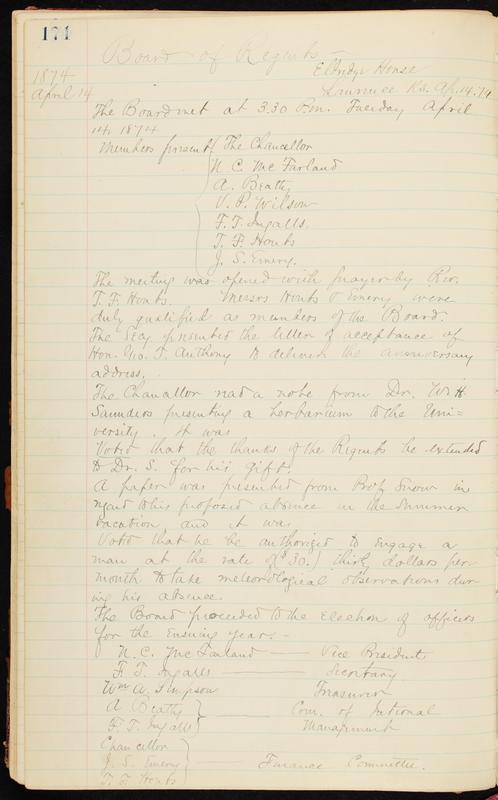 171
Board of Regents —
Eldridge House
Lawrence Ks. Ap. 14. 74
1874
April 14
The Board met at 3.30 P.m. Tuesday April
14, 1874
Members present
The Chancellor
N. C. McFarland
A. Beatty
V. P. Wilson
F. T. Ingalls.
T. F. Houts
J. S. Emery.
The meeting was opened with prayer by Rev.
T. F. Houts. Messrs Houts & Emery were
duly qualified as members of the Board.
The Secy presented the letter of acceptance of
Hon. Geo. T. Anthony to deliver the anniversary
address.
The Chancellor read a note from Dr. W. H.
Saunders presenting a herbarium to the Uni=
versity. It was
Voted that the thanks of the Regents be extended
to Dr. S. for his gift.
A paper was presented from Prof Snow in
regard to his proposed absence in the summer
vacation, and it was
Voted that he be authorized to engage a
man at the rate of ($30.) thirty dollars per
month to take meteorological observations dur-
ing his absence.
The Board proceeded to the election of officers
for the ensuing year. -
N. C. McFarland — Vice President
F. T. Ingalls — Secretary
Wm A. Simpson Treasurer
A Beatty
F. T. Ingalls — Com. of Internal
Management
Chancellor
J. S. Emery — Finance Committee.
T. F. Houts